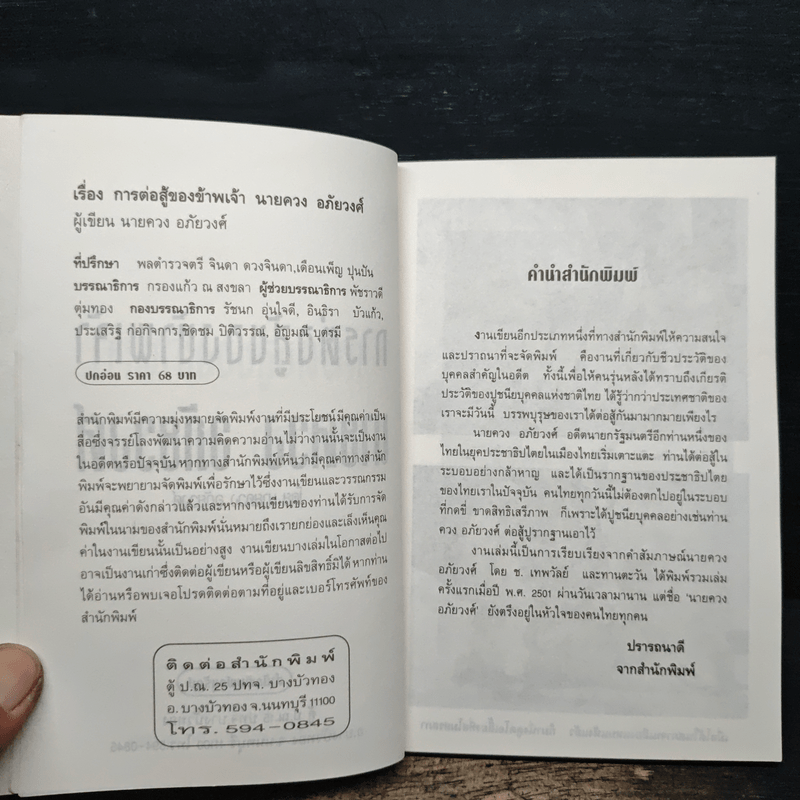 เรื่อง การต่อสู้ของข้าพเจ้า นายควง อภัยวงศ์
ผู้เขียน นายควง อภัยวงศ์
ที่ปรึกษา พลตำรวจตรี จินดา ดวงจินดา,เดือนเพ็ญ ปุนปัน
บรรณาธิการ กรองแก้ว ณ สงขลา ผู้ช่วยบรรณาธิการ พัชราวดี
ตุ่มทอง กองบรรณาธิการ รัชนก อุ่นใจดี, อินธิรา บัวแก้ว,
ประเสริฐ ก่อกิจการ,ชิดชม ปิติวรรณ, อัญมณี บุตรมี
ปกอ่อน ราคา 68 บาท
สำนักพิมพ์มีความมุ่งหมายจัดพิมพ์งานที่มีประโยชน์มีคุณค่าเป็น
สื่อซึ่งจรรย์โลงพัฒนาความคิดความอ่าน ไม่ว่างานนั้นจะเป็นงาน
ในอดีตหรือปัจจุบัน หากทางสำนักพิมพ์เห็นว่ามีคุณค่าทางสำนัก
พิมพ์จะพยายามจัดพิมพ์เพื่อรักษาไว้ซึ่งงานเขียนและวรรณกรรม
อันมีคุณค่าดังกล่าวแล้วและหากงานเขียนของท่านได้รับการจัด
พิมพ์ในนามของสำนักพิมพ์นั่นหมายถึงเรายกย่องและเล็งเห็นคุณ
ค่าในงานเขียนนั้นเป็นอย่างสูง งานเขียนบางเล่มในโอกาสต่อไป
อาจเป็นงานเก่าซึ่งติดต่อผู้เขียนหรือผู้เขียนลิขสิทธิ์มิได้ หากท่าน
ได้อ่านหรือพบเจอโปรดติดต่อตามที่อยู่และเบอร์โทรศัพท์ของ
สำนักพิมพ์
ติดต่อสำนักพิมพ์
ตู้ ป.ณ. 25 ปทจ. บางบัวทอง
อ.บางบัวทอง จ.นนทบุรี 11100
โทร. 594-0845
คำนำสำนักพิมพ์
งานเขียนอีกประเภทหนึ่งที่ทางสำนักพิมพ์ให้ความสนใจ
และปราถนาที่จะจัดพิมพ์ คืองานที่เกี่ยวกับชีวประวัติของ
บุคคลสำคัญในอดีต ทั้งนี้เพื่อให้คนรุ่นหลังได้ทราบถึงเกียรติ
ประวัติของปูชนียบุคคลแห่งชาติไทย ได้รู้ว่ากว่าประเทศชาติของ
เราจะมีวันนี้ บรรพบุรุษของเราได้ต่อสู้กันมามากมายเพียงไร
นายควง อภัยวงศ์ อดีตนายกรัฐมนตรีอีกท่านหนึ่งของ
ไทยในยุคประชาธิปไตยในเมืองไทยเริ่มเตาะแตะ ท่านได้ต่อสู้ใน
ระบอบอย่างกล้าหาญ และได้เป็นรากฐานของประชาธิปไตย
ของไทยเราในปัจจุบัน คนไทยทุกวันนี้ไม่ต้องตกไปอยู่ในระบอบ
ที่กดขี่ ขาดสิทธิเสรีภาพ ก็เพราะได้ปูชนียบุคคลอย่างเช่นท่าน
ควง อภัยวงศ์ ต่อสู้ปูรากฐานเอาไว้
งานเล่มนี้เป็นการเรียบเรียงจากคำสัมภาษณ์นายควง
อภัยวงศ์ โดย ช. เทพวัลย์ และทานตะวัน ได้พิมพ์รวมเล่ม
ครั้งแรกเมื่อปี พ.ศ. 2501 ผ่านวันเวลามานาน แต่ชื่อ 'นายควง
อภัยวงศ์' ยังตรึงอยู่ในหัวใจของคนไทยทุกคน
ปรารถนาดี
จากสำนักพิมพ์